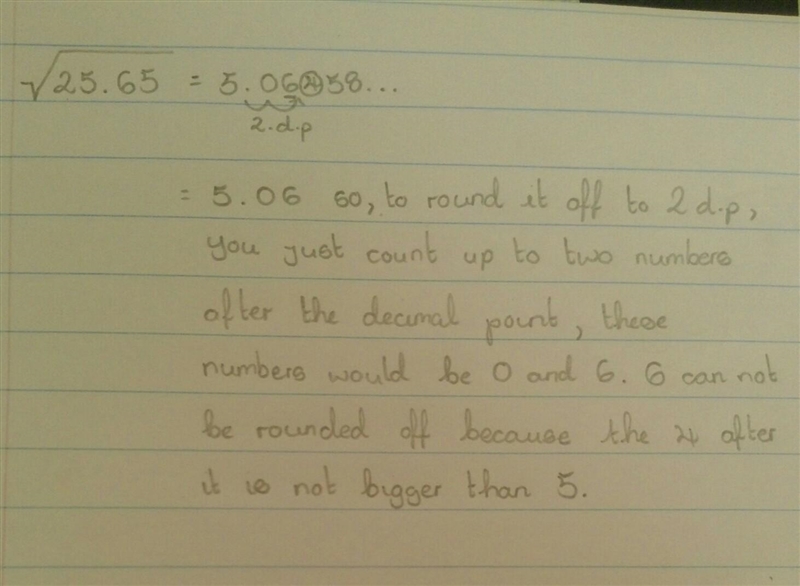 √25.65 = 5.06458...
2.d.p
= 5.06 so, to round it off to 2 d.p,
you just count up to two numbers
after the decimal point, these
numbers would be 0 and 6. 6 can not
be rounded off because the 4 after
it is not bigger than 5.